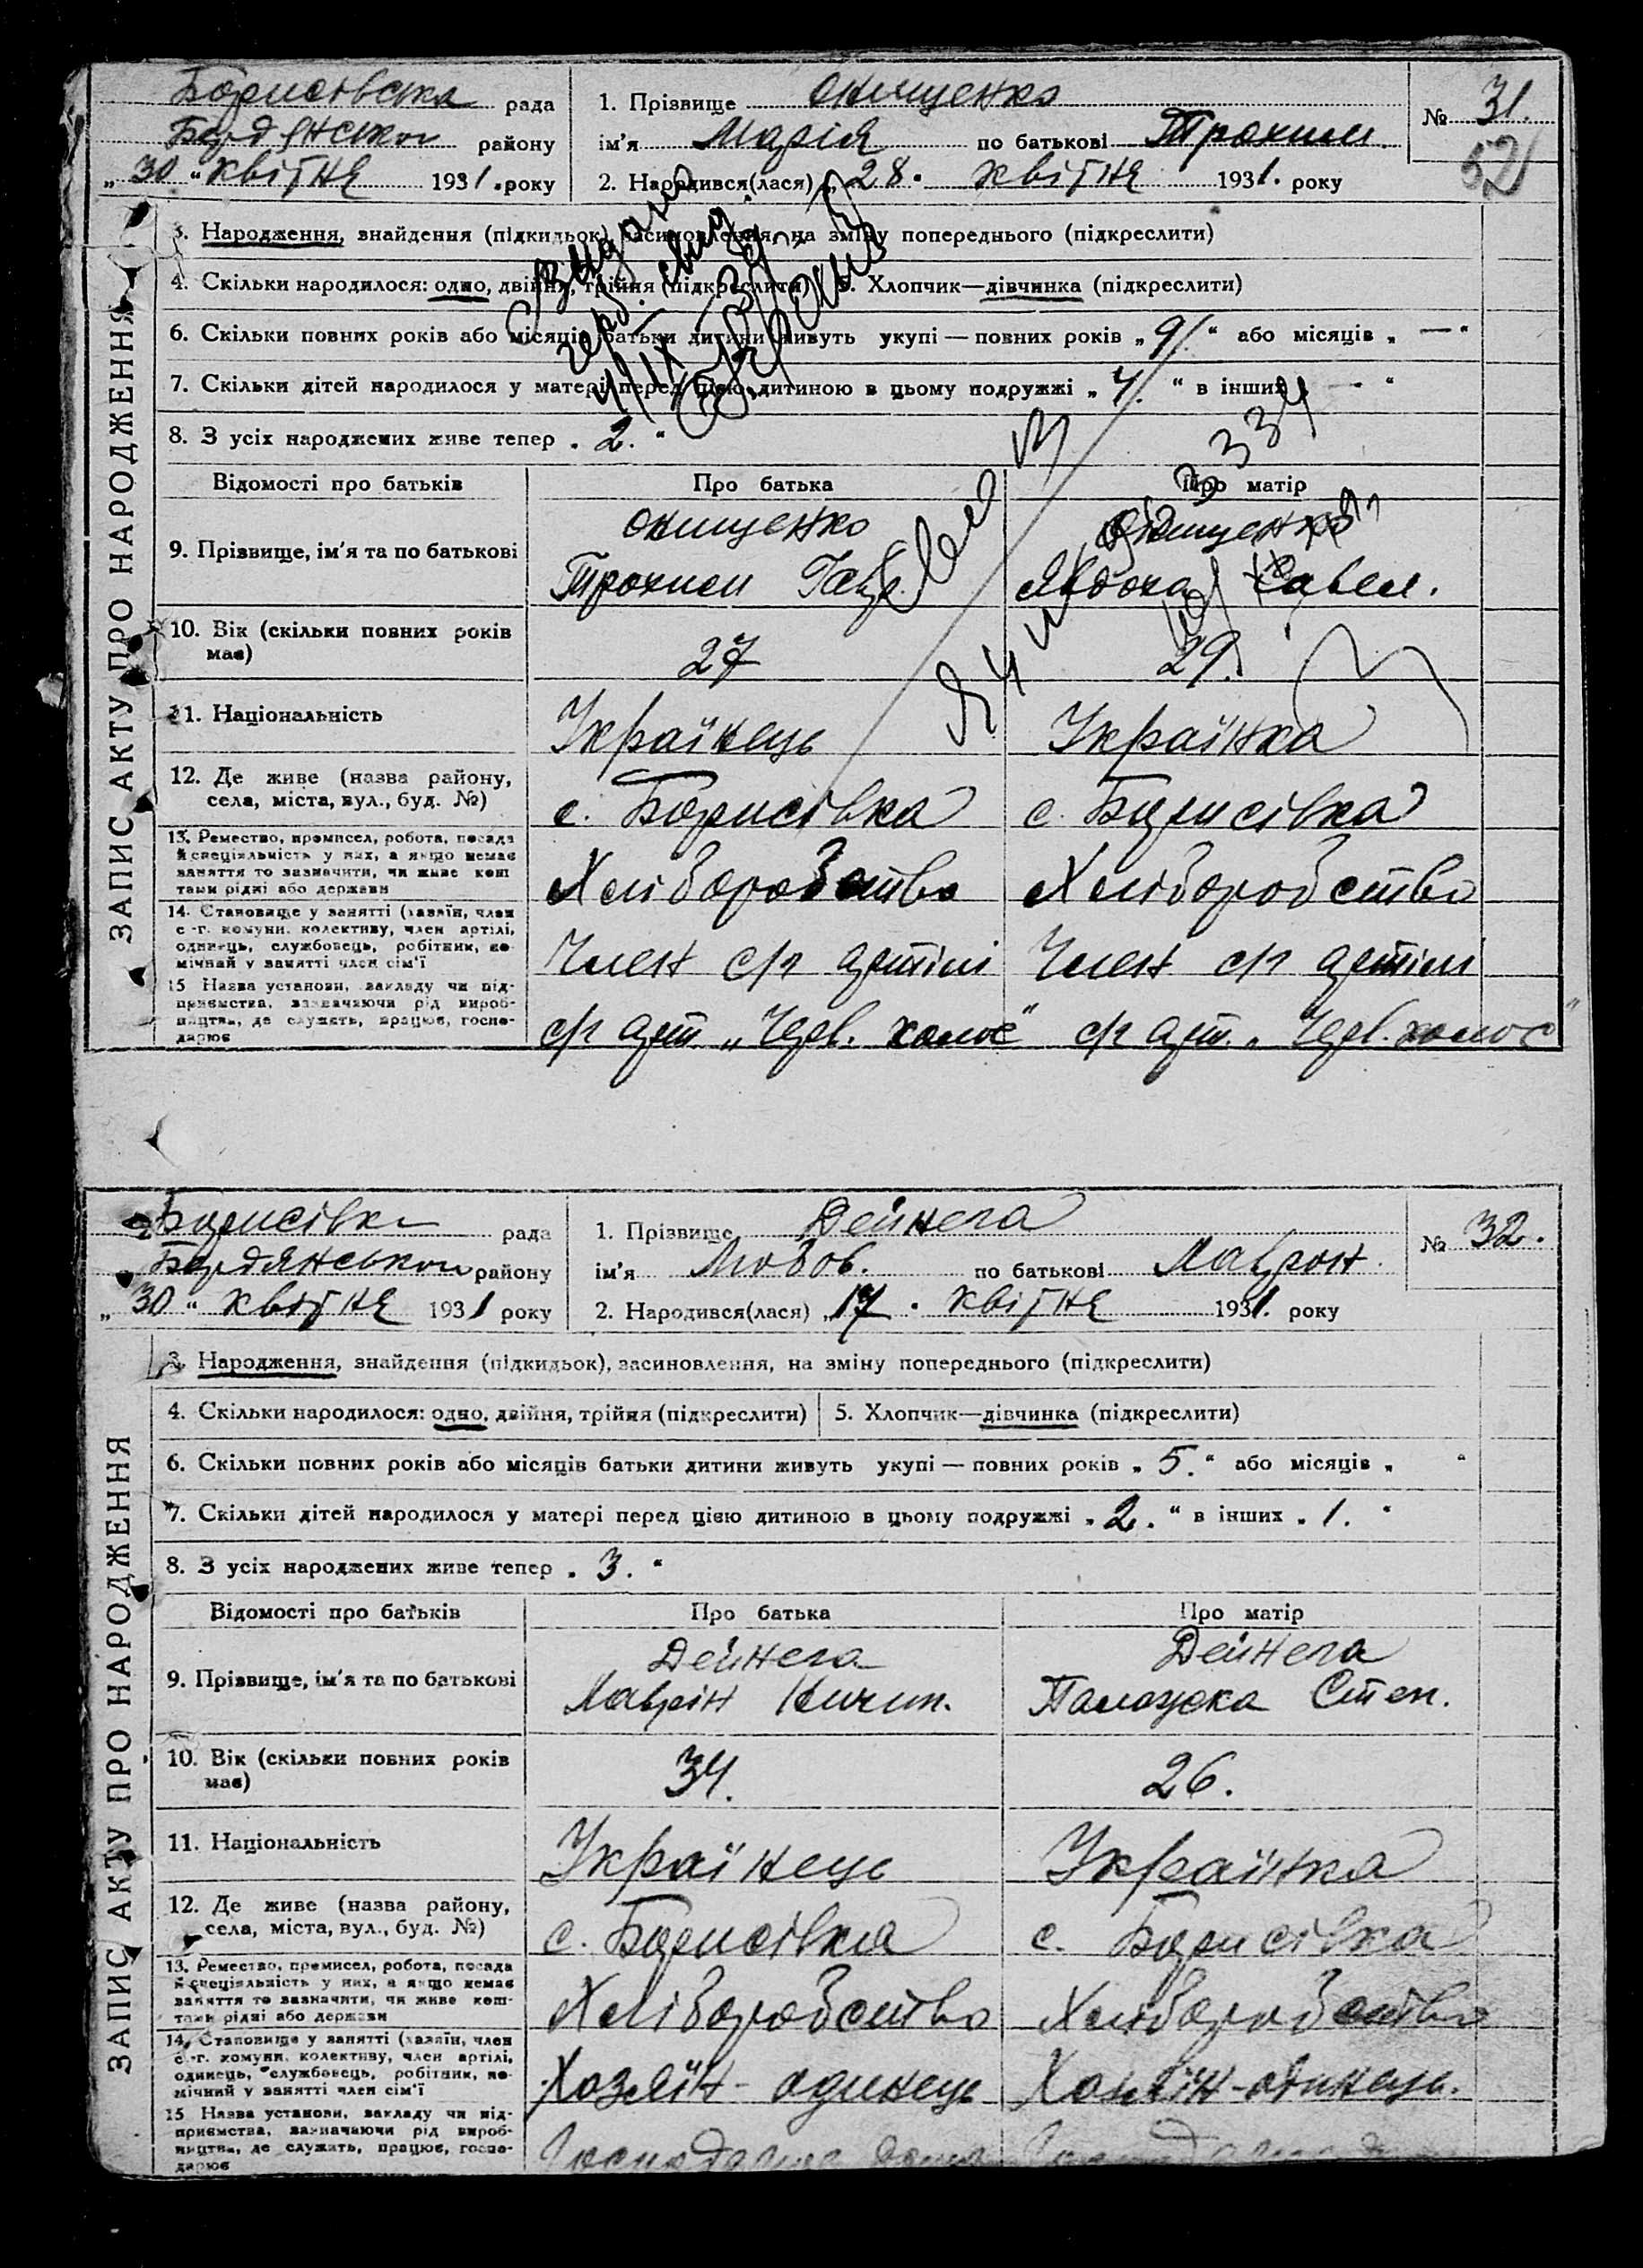 Борисівська рада
Бердянськом району
„ 30 “ квітня 1931. року
1. Прізвище Онищенко
ім'я Марія по батькові Трохим.
2. Народився(лася) „ 28. квітня 1931. року
№ 31.
52
3. Народження, знайдення (підкидьок), засиновлення, на зміну попереднього (підкреслити)
4. Скільки народилося: одно, двійня, трійня (підкреслити) 5. Хлопчик—дівчинка (підкреслити)
6. Скільки повних років або місяців батьки дитини живуть укупі — повних років „ 9. “ або місяців „ — “
7. Скільки дітей народилося у матері перед цією дитиною в цьому подружжі „ 4. “ в інших „ — “
8. З усіх народжених живе тепер „ 2. “
Відомості про батьків Про батька Про матір
9. Прізвище, ім'я та по батькові
Онищенко Онищенко
Трохим Явдоха Савел.
10. Вік (скільки повних років має) 27 29.
11. Національність Українець Українка
12. Де живе (назва району, села, міста, вул., буд. №) с. Борисівка с. Борисівка
13. Ремество, промисел, робота, посада й спеціяльність у них, а якщо немає заняття то зазначити, чи живе коштами рідні або держави
Хліборобство Хліборобство
14. Становище у занятті (хазяїн, член с.-г. комуни, колективу, член артілі, одинець, службовець, робітник, помічний у занятті член сім'ї
Член с/г артілі Член с/г артілі
15 Назва установи, закладу чи підприємства, зазначаючи рід виробництва, де служить, працює, господарює
с/г арт „Черв. колос“ с/г арт. „Черв. колос“
ЗАПИС АКТУ ПРО НАРОДЖЕННЯ
Борисівка рада
Бердянськом району
„ 30 “ квітня 1931 року
1. Прізвище Дейнега
ім'я Любов. по батькові Лаврон.
2. Народився(лася) „ 17. квітня 1931. року
№ 32.
3. Народження, знайдення (підкидьок), засиновлення, на зміну попереднього (підкреслити)
4. Скільки народилося: одно, двійня, трійня (підкреслити) 5. Хлопчик—дівчинка (підкреслити)
6. Скільки повних років або місяців батьки дитини живуть укупі — повних років „ 5. “ або місяців „ “
7. Скільки дітей народилося у матері перед цією дитиною в цьому подружжі „ 2. “ в інших „ 1. “
8. З усіх народжених живе тепер „ 3. “
Відомості про батьків Про батька Про матір
9. Прізвище, ім'я та по батькові
Дейнега Дейнега
Лаврін Кичит. Палажка Степ.
10. Вік (скільки повних років має) 34. 26.
11. Національність Українець Українка
12. Де живе (назва району, села, міста, вул., буд. №) с. Борисівка с. Борисівка
13. Ремество, промисел, робота, посада й спеціяльність у них, а якщо немає заняття то зазначити, чи живе коштами рідні або держави
Хліборобство Хліборобство
14. Становище у занятті (хазяїн, член с.-г. комуни, колективу, член артілі, одинець, службовець, робітник, помічний у занятті член сім'ї
Хозяїн - одинець Хозяїн - одинець.
15 Назва установи, закладу чи підприємства, зазначаючи рід виробництва, де служить, працює, господарює
ЗАПИС АКТУ ПРО НАРОДЖЕННЯ